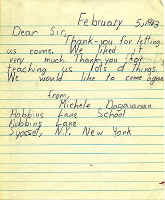 February 5, 1963
Dear Sir,
Thank-you for letting
us come. We liked it
very much. Thank you for
teaching us lots of things.
We would like to come again.
from,
Michele
Robbins Lane School
Robbins Lane
Syosset, N.Y. New York